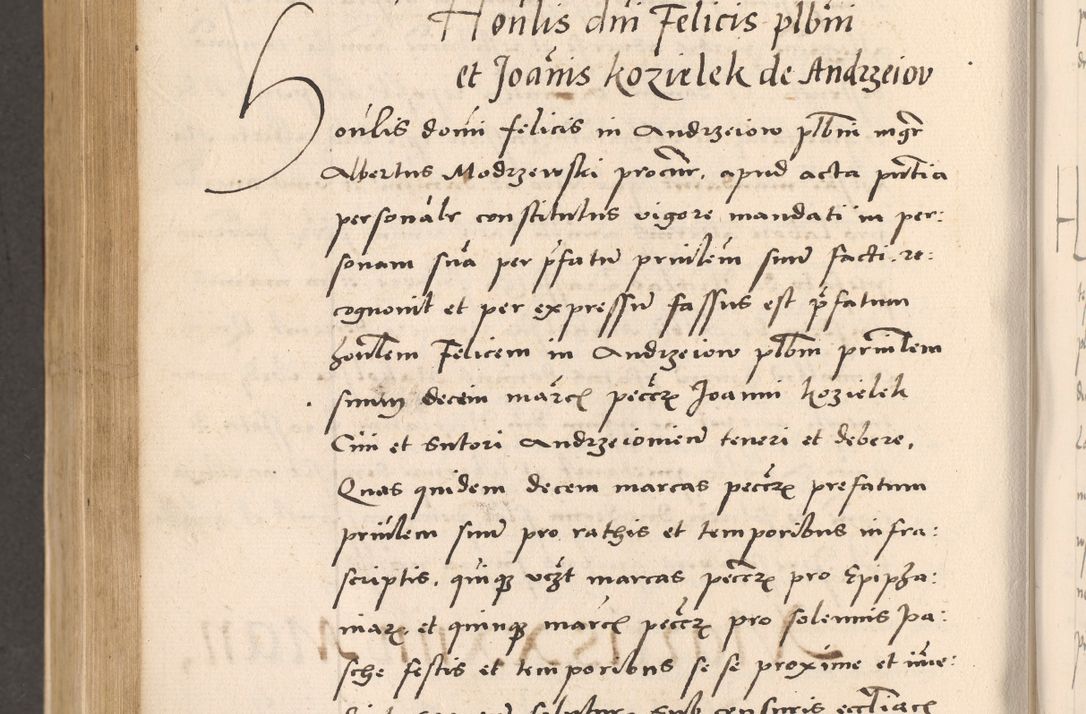 Honlis dni Felicis plbni
et Joannis Kozielek de Andrzeiov
Honlis domi felicis in Andrzeiow plbni mgr
Albertus Modrzewski procur, apud acta pntia
personalr constitutus vigore mandati in per:
sonam sua per pfatu prinlem suu facti. re:
cognovit et per expressu fassus est pfatum
honlem Felicem in Andrzeiow plbm prinlem
suum decem marcs peccrz Joanni Kozielek
Civi et sutori Andrzeioviecu teneri et debere,
Quas quidem decem marcas peccrz prefatum
prinlem suu pro rathis et temporibus infra:
scriptis, quinqz vczt marcas peccrz pro Epipha:
niarz et quinqz marcs peccrz pro solennis Pa:
sche festis et temporibus se se proxime et imme:
sub censuris eccliacs